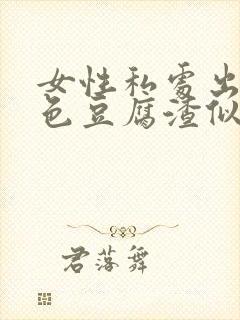 女性私处出
色豆腐渣似
君落舞